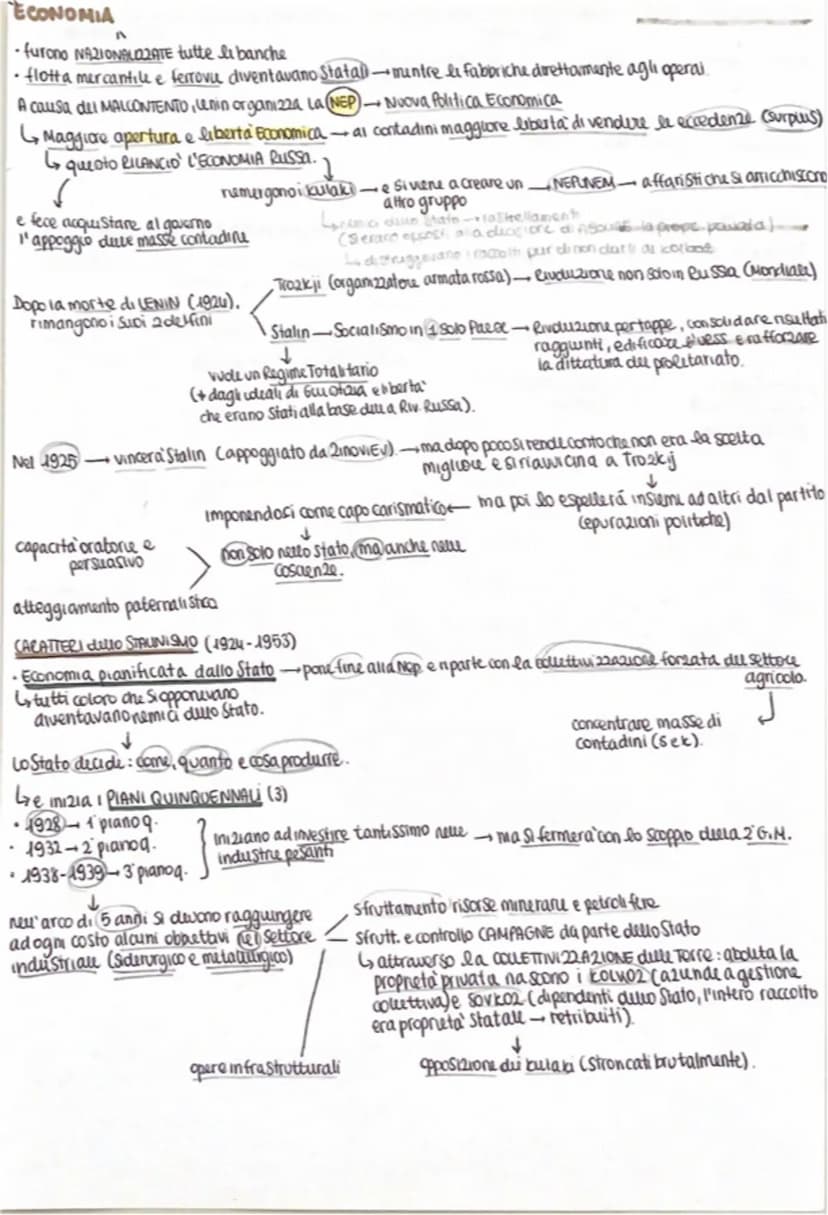 ECONOMIA
· furono NAZIONALIZZATE tutte le banche
· flotta mercantile e ferrovie diventavano Statali → mentre le fabbriche direttamente agli operai
A causa del MALCONTENTO, Lenin organizza la NEP → Nuova Politica Economica
↳ Maggiore apertura e libertà Economica → ai contadini maggiore libertà di vendere le eccedenze (surplus)
↳ questo RILANCIÒ L'ECONOMIA RUSSA.
riemergono i kulaki → e si viene a creare un altro gruppo → NEPMEM → affaristi che si arricchiscono
e fece acquistare al governo
l'appoggio delle masse contadine
↳ nemici dello Stato →
(Si erano opposti alla decisione di la propr. privata)
↳ distruggevano i raccolti pur di non darli ai kolkoz
Dopo la morte di LENIN (1924),
rimangono i suoi 2 delfini
Trozkij (organizzatore armata rossa) → Rivoluzione non solo in Russia (Mondiale)
Stalin → Socialismo in 1 solo Paese → Rivoluzione per tappe, consolidare risultati
raggiunti, edificare l'URSS e rafforzare
la dittatura del proletariato.
vuole un Regime Totalitario
(≠ dagli ideali di Giustizia e libertà
che erano stati alla base della Riv. Russa).
Nel 1925 → vincerà Stalin (appoggiato da Zinoviev) → ma dopo poco si rende conto che non era la scelta
migliore e si riavvicina a Trozkij
ma poi lo espellerà insieme ad altri dal partito
(epurazioni politiche)
imponendosi come capo carismatico ←
non solo nello Stato, ma anche nelle
coscienze.
capacità oratorie e
persuasivo
atteggiamento paternalistico
CARATTERI dello STALINISMO (1924-1953)
· Economia pianificata dallo Stato → pone fine alla Nep e riparte con la collettivizzazione forzata del settore
agricolo.
↳ tutti coloro che si opponevano
diventavano nemici dello Stato.
concentrare masse di
contadini
Lo Stato decide: come, quanto e cosa produrre.
↳ e inizia i PIANI QUINQUENNALI (3)
· 1928 → 1° piano q.
· 1932 → 2° piano q.
· 1938-1939 → 3° piano q.
Iniziano ad investire tantissimo nelle
industrie pesanti
→ ma si fermerà con lo scoppio della 2° G.M.
nell'arco di 5 anni si devono raggiungere
ad ogni costo alcuni obiettivi nel settore
industriale (siderurgico e metallurgico)
sfruttamento risorse minerarie e petrolifere
sfrutt. e controllo CAMPAGNE da parte dello Stato
↳ attraverso la COLLETTIVIZZAZIONE delle Terre: abolita la
proprietà privata nascono i KOLKOZ (aziende a gestione
collettiva) e SOVKOZ (dipendenti dello Stato, l'intero raccolto
era proprietà statale → retribuiti).
opere infrastrutturali
opposizione dei kulaki (stroncati brutalmente).